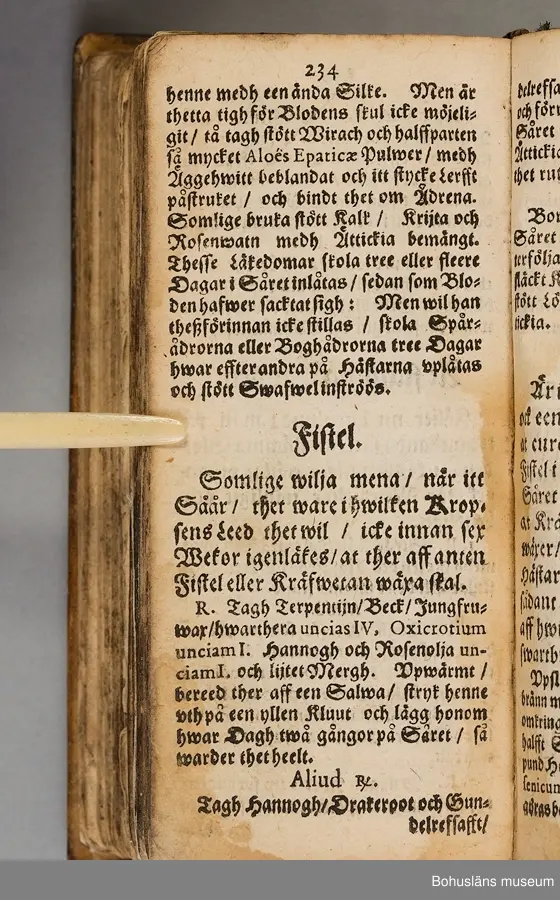 234
henne medh een ända Silke. Men är
thetta tigh för Blodens skul icke möjeli-
git / tå tagh stött Wirach och halffparten
så mycket Aloës Epaticæ Pulwer / medh
Äggehwitt beblandat och itt stycke Lerfft
påstruket / och bindt thet om Ådrena.
Somlige bruka stött Kalk / Krijta och
Rosenwatn medh Ättickia bemängt.
Thesse Läkedomar skola tree eller fleere
Dagar i Såret inlåtas / sedan som Blo-
den hafwer sacktat sigh: Men wil han
theßförinnan icke stillas / skola Spår-
ådrorna eller Boghådrorna tree Dagar
hwar effter andra på Hästarna vplåtas
och stött Swafwel inströös.
Fistel.
Somlige wilja mena / när itt
Såår / thet ware i hwilken Krop-
sens Leed thet wil / icke innan sex
Wekor igenläkes / at ther aff anten
Fistel eller Kräfwetan wäxa skal.
R. Tagh Terpentijn / Beck / Jungfru-
wax / hwarthera uncias IV, Oxicrotium
unciam I. Hannogh och Rosenolja un-
ciam I. och lijtet Mergh. Vpwärmt /
bereed ther aff een Salwa / stryk henne
vth på een yllen Kluut och lägg honom
hwar Dagh twå gångor på Såret / så
warder thet heelt.
Aliud ℞.
Tagh Hannogh / Drakeroot och Gun-
delrefsafft /
delrefsa
och förr
Såret
Ättickia
thet rut
Bor
Såret
terfölja
släckt K
stött Lö
tickia.
Är
och een
at cure
Fistel i
Såret
at Krä
wäxer /
Hästar
sådant
aff hwi
swarth
Vpsl
bränn m
omkring
halfft S
pund H
senicum
göras be
Bohusläns museum